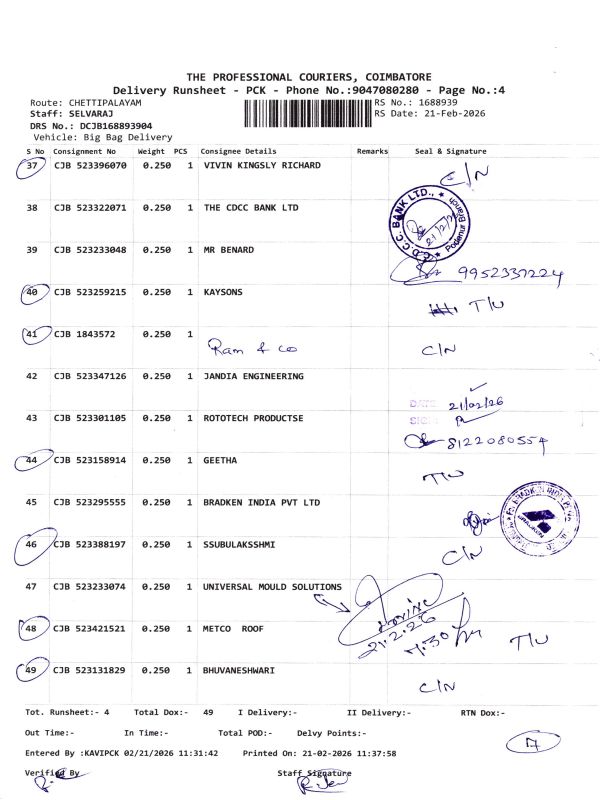 THE PROFESSIONAL COURIERS, COIMBATORE
Delivery Runsheet - PCK - Phone No.:9047080280 - Page No.:4
Route: CHETTIPALAYAM RS No.: 1688939
Staff: SELVARAJ RS Date: 21-Feb-2026
DRS No.: DCJB168893904
Vehicle: Big Bag Delivery
S No Consignment No Weight PCS Consignee Details Remarks Seal & Signature
37 CJB 523396070 0.250 1 VIVIN KINGSLY RICHARD C/N
38 CJB 523322071 0.250 1 THE CDCC BANK LTD
C.D.C.C. BANK LTD., Podanur Branch
39 CJB 523233048 0.250 1 MR BENARD
9952337224
40 CJB 523259215 0.250 1 KAYSONS T/U
41 CJB 1843572 0.250 1
Ram & co C/N
42 CJB 523347126 0.250 1 JANDIA ENGINEERING
DATE 21/02/26
43 CJB 523301105 0.250 1 ROTOTECH PRODUCTSE SIGN
8122080554
44 CJB 523158914 0.250 1 GEETHA T/U
45 CJB 523295555 0.250 1 BRADKEN INDIA PVT LTD
46 CJB 523388197 0.250 1 SSUBULAKSSHMI C/N
47 CJB 523233074 0.250 1 UNIVERSAL MOULD SOLUTIONS
21.2.26
48 CJB 523421521 0.250 1 METCO ROOF 7.30 T/U
49 CJB 523131829 0.250 1 BHUVANESHWARI
C/N
Tot. Runsheet:- 4 Total Dox:- 49 I Delivery:- II Delivery:- RTN Dox:-
Out Time:- In Time:- Total POD:- Delvy Points:-
17
Entered By :KAVIPCK 02/21/2026 11:31:42 Printed On: 21-02-2026 11:37:58
Verified By Staff Signature